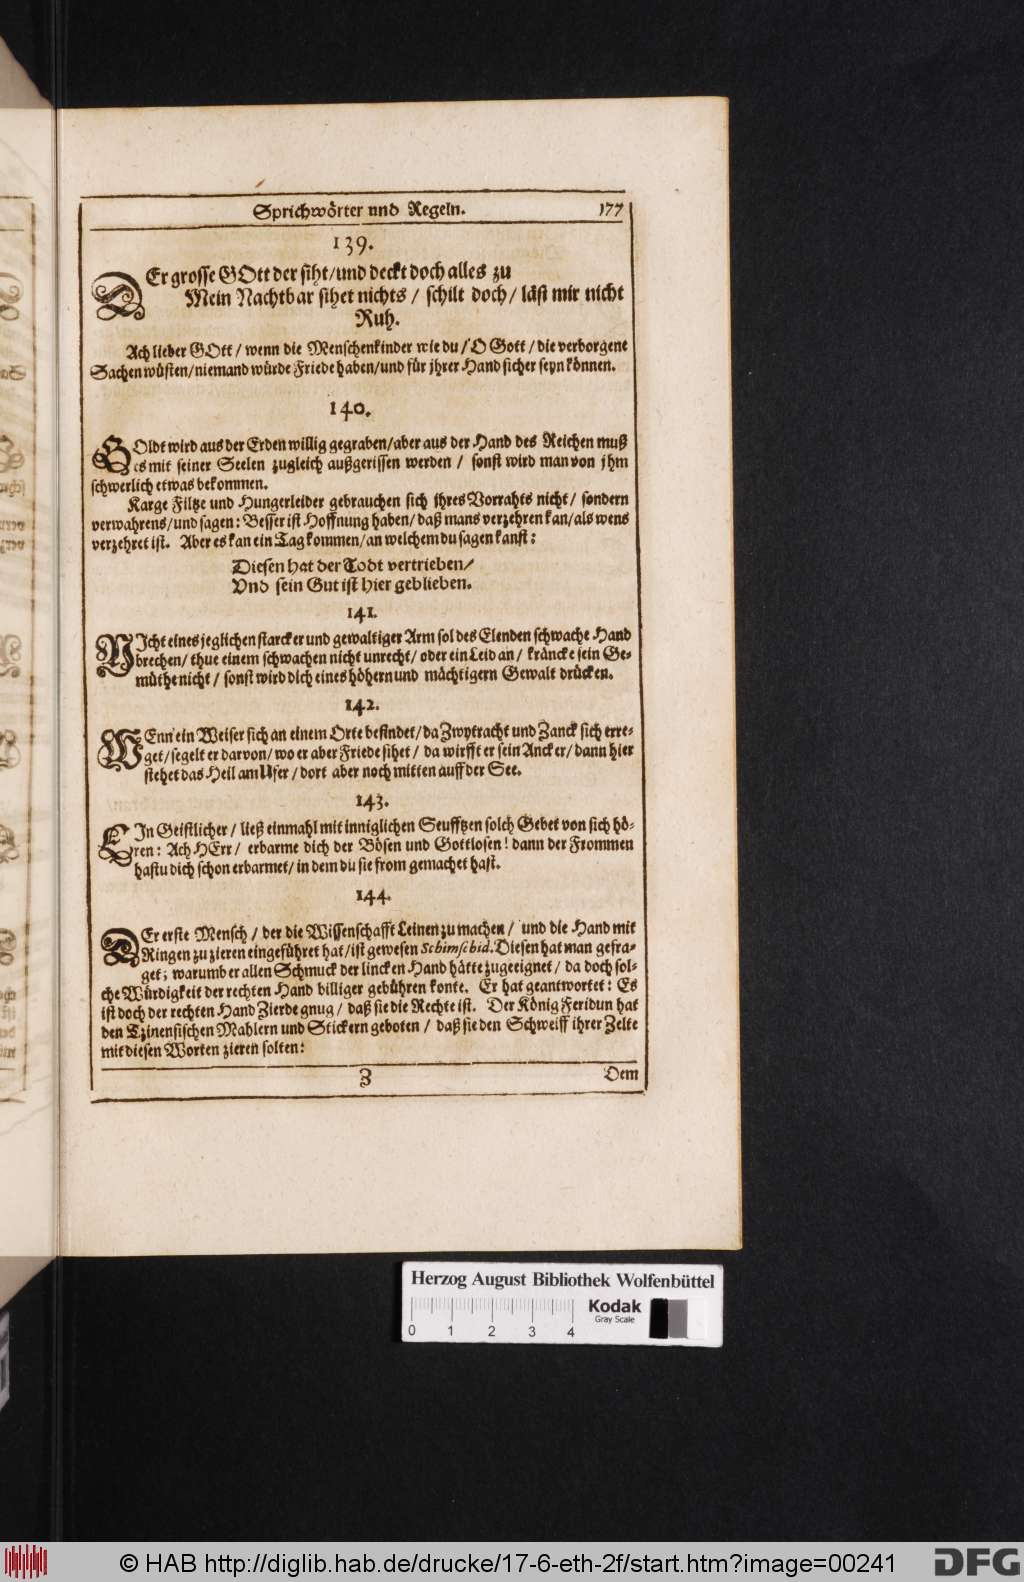 Sprichwörter und Regeln. 177
139.
DEr grosse GOtt der siht/und deckt doch alles zu
Mein Nachtbar sihet nichts / schilt doch / läst mir nicht
Ruh.
Ach lieber GOtt / wenn die Menschenkinder wie du / O Gott / die verborgene
Sachen wüsten/niemand würde Friede haben/und für jhrer Hand sicher seyn können.
140.
GOldt wird aus der Erden willig gegraben/aber aus der Hand des Reichen muß
es mit seiner Seelen zugleich außgerissen werden / sonst wird man von jhm
schwerlich etwas bekommen.
Karge Filtze und Hungerleider gebrauchen sich jhres Vorrahts nicht / sondern
verwahrens/und sagen: Besser ist Hoffnung haben/daß mans verzehren kan/als wens
verzehret ist. Aber es kan ein Tag kommen/an welchem du sagen kanst:
Diesen hat der Todt vertrieben/
Vnd sein Gut ist hier geblieben.
141.
NIcht eines jeglichen starcker und gewaltiger Arm sol des Elenden schwache Hand
brechen/ thue einem schwachen nicht unrecht/ oder ein Leid an / kräncke sein Ge-
müthe nicht / sonst wird dich eines höhern und mächtigern Gewalt drücken.
142.
WEnn ein Weiser sich an einem Orte befindet/da Zwytracht und Zanck sich erre-
get/segelt er darvon/wo er aber Friede sihet / da wirfft er sein Ancker/dann hier
stehet das Heil am Ufer / dort aber noch mitten auff der See.
143.
EIn Geistlicher / ließ einmahl mit inniglichen Seufftzen solch Gebet von sich hö-
ren: Ach HErr / erbarme dich der Bösen und Gottlosen! dann der Frommen
hastu dich schon erbarmet/ in dem du sie from gemachet hast.
144.
DEr erste Mensch / der die Wissenschafft Leinen zu machen / und die Hand mit
Ringen zu zieren eingeführet hat/ist gewesen Schimschid. Diesen hat man gefra-
get; warumb er allen Schmuck der lincken Hand hätte zugeeignet / da doch sol-
che Würdigkeit der rechten Hand billiger gebühren konte. Er hat geantwortet: Es
ist doch der rechten Hand Zierde gnug / daß sie die Rechte ist. Der König Feridun hat
den Tzinensischen Mahlern und Stickern geboten / daß sie den Schweiff ihrer Zelte
mit diesen Worten zieren solten:
Z Dem
Herzog August Bibliothek Wolfenbüttel
0 1 2 3 4
Kodak
Gray Scale
© HAB http://diglib.hab.de/drucke/17-6-eth-2f/start.htm?image=00241
DFG